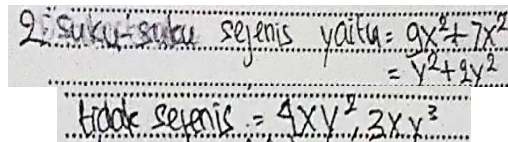 2. suku-suku sejenis yaitu = 9x²+7x²
= y²+2y²
tidak sejenis = 4xy², 3xy³